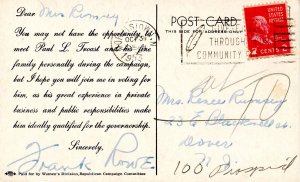 Dear Mrs Rumsey
You may not have the opportunity to
meet Paul L. Troast and his fine
family personally during the campaign,
but I hope you will join me in voting for
him, as his great experience in private
business and public responsibilities make
him ideally qualified for the governorship.
Sincerely,
Frank Rowe
Paid for by Women's Division, Republican Campaign Committee
POST CARD
THROUGH
COMMUNITY
2 CENTS 2
Mrs. Renee Rumsey
Dover
N. J.